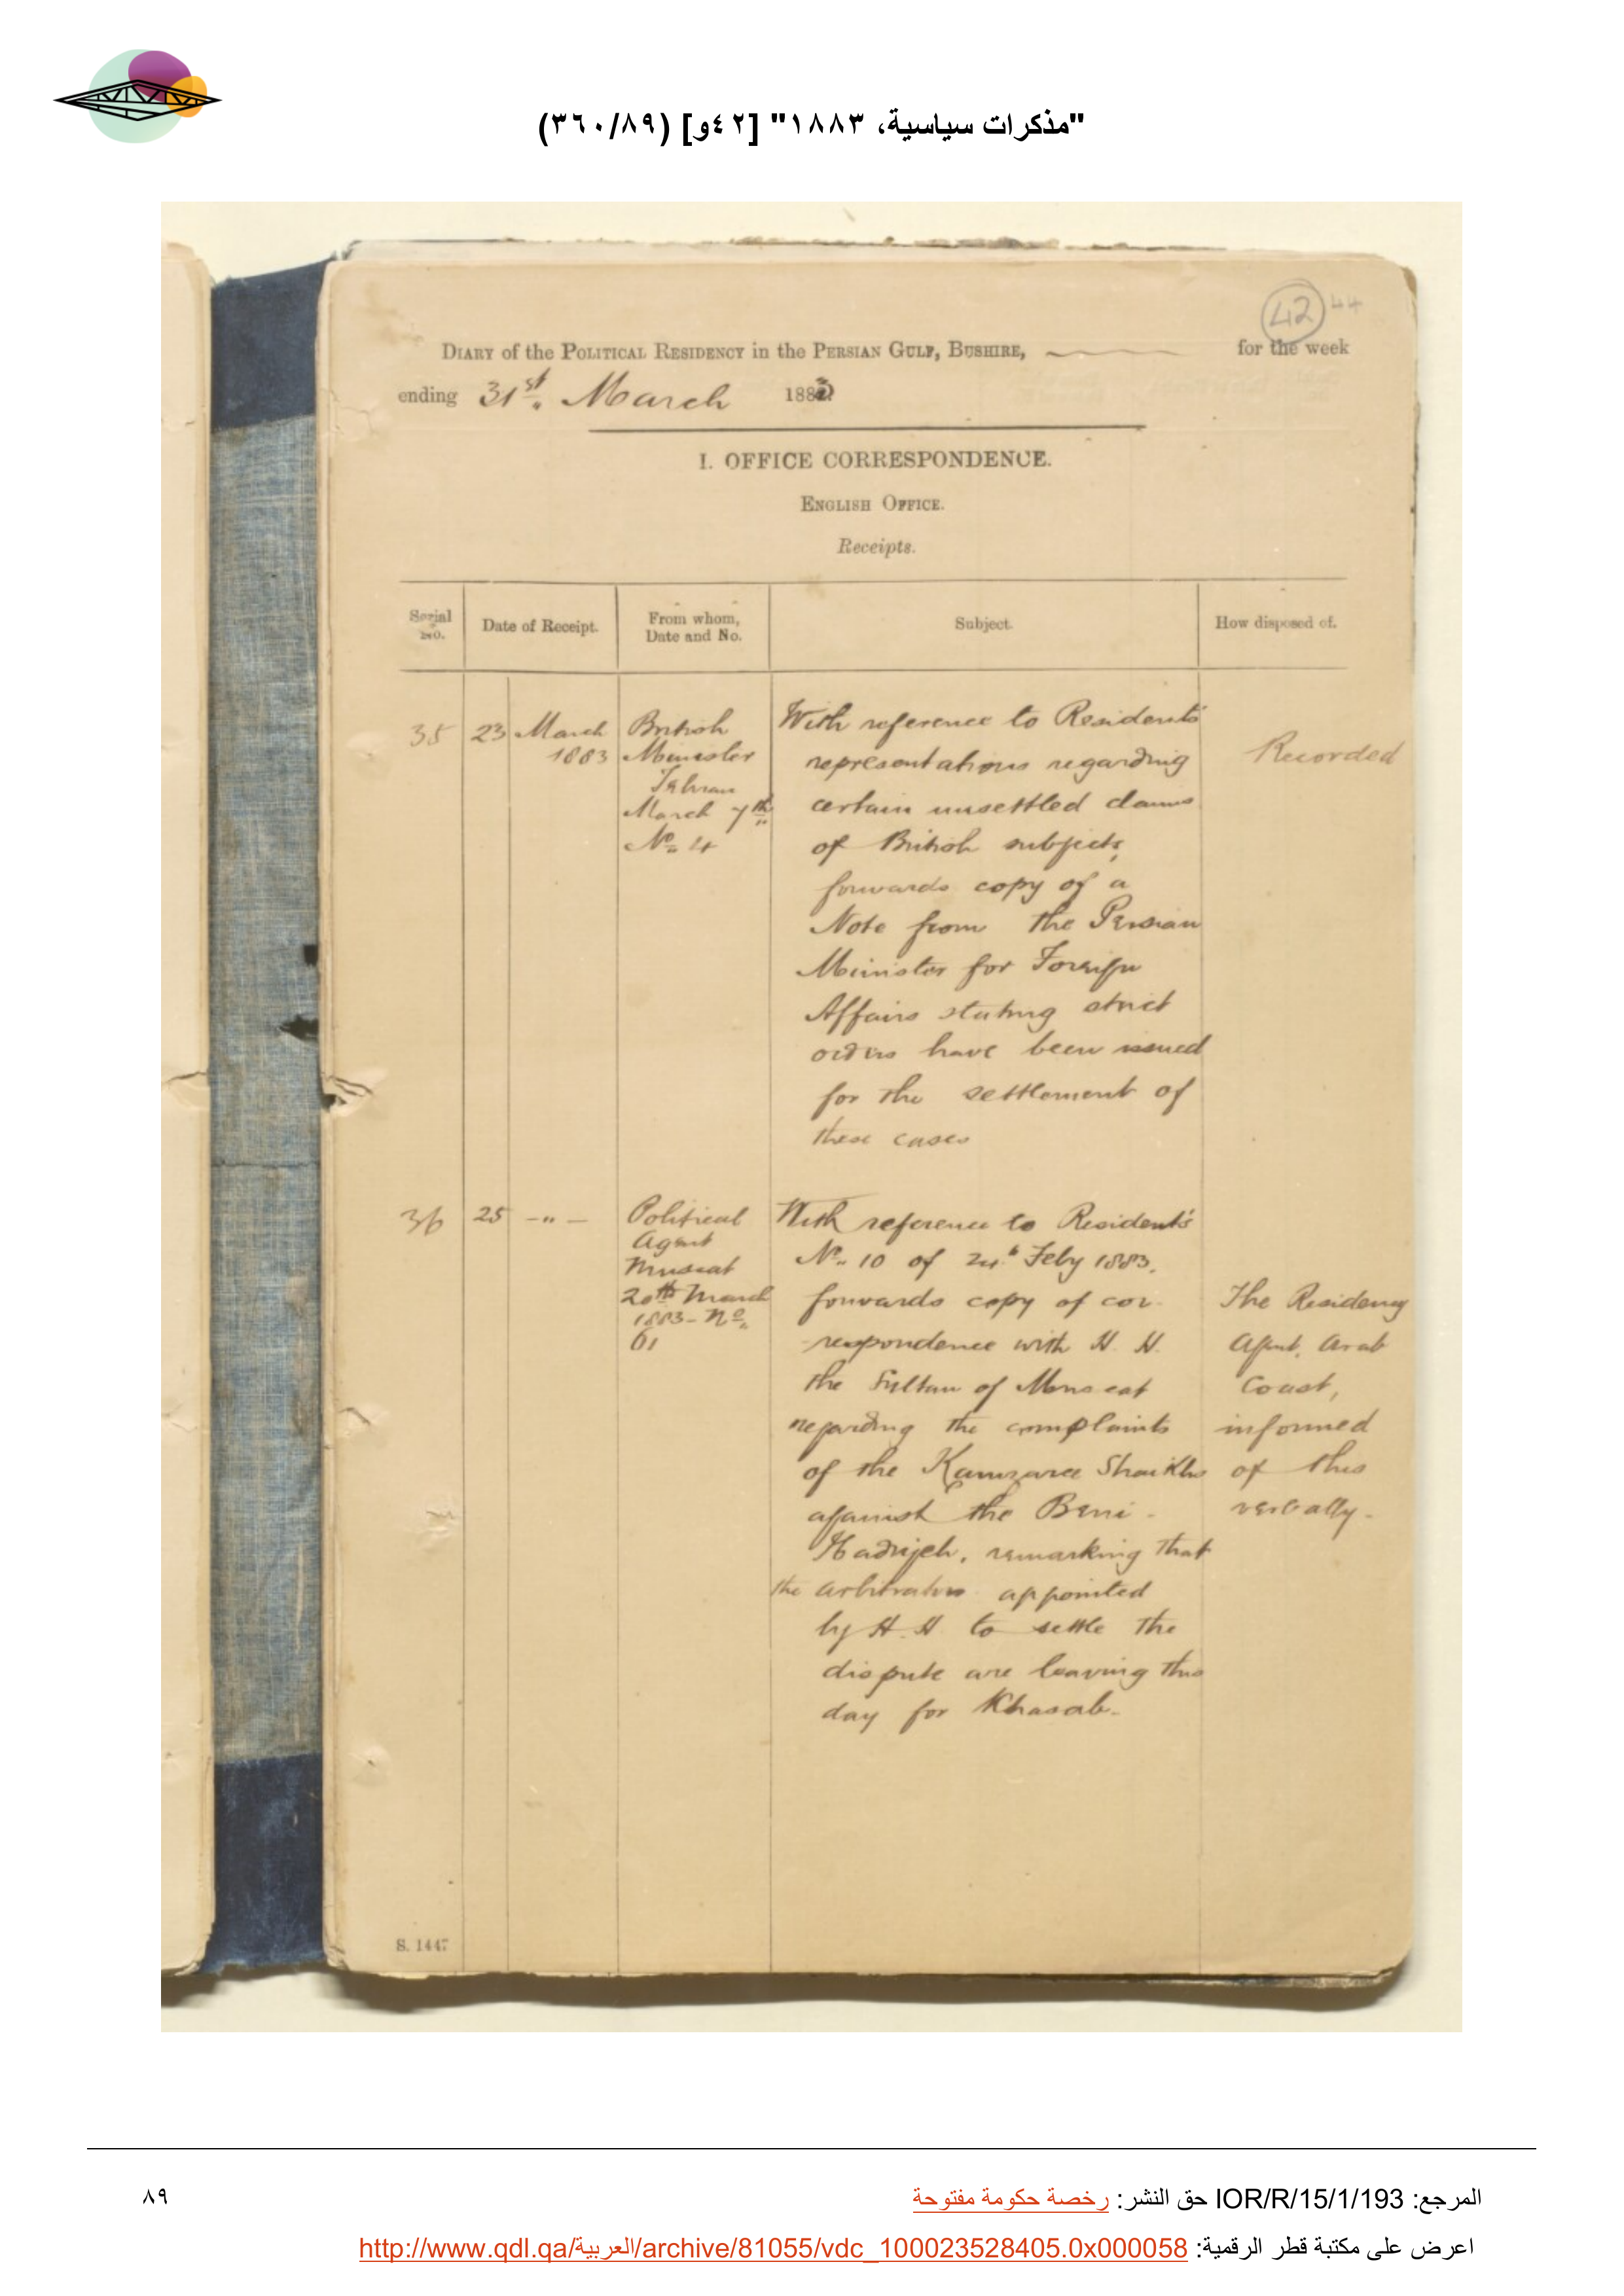 "مذكرات سياسية، ١٨٨٣" [٤٢و] (٣٦٠/٨٩)
42 44
DIARY of the POLITICAL RESIDENCY in the PERSIAN GULF, BUSHIRE, for the week
ending 31st March 1883
I. OFFICE CORRESPONDENCE.
ENGLISH OFFICE.
Receipts.
Serial No.
Date of Receipt.
From whom,
Date and No.
Subject.
How disposed of.
35
23 March
1883
British
Minister
Tehran
March 7th
No. 4
With reference to Residents'
representations regarding
certain unsettled claims
of British subjects,
forwards copy of a
Note from the Persian
Minister for Foreign
Affairs stating strict
orders have been issued
for the settlement of
these cases
Recorded
36
25 -"-
Political
Agent
Muscat
20th March
1883 - No.
61
With reference to Resident's
No. 10 of 24th Feby 1883.
forwards copy of cor-
-respondence with H. H.
the Sultan of Muscat
regarding the complaints
of the Kamzara Shaikhs
against the Beni-
Hadrijeh, remarking that
the arbitrators appointed
by H. H. to settle the
dispute are leaving this
day for Khasab.
The Residency
Agent, Arab
Coast,
informed
of this
verbally.
S. 1447
المرجع: IOR/R/15/1/193 حق النشر: رخصة حكومة مفتوحة
٨٩
اعرض على مكتبة قطر الرقمية: http://www.qdl.qa/العربية/archive/81055/vdc_100023528405.0x000058